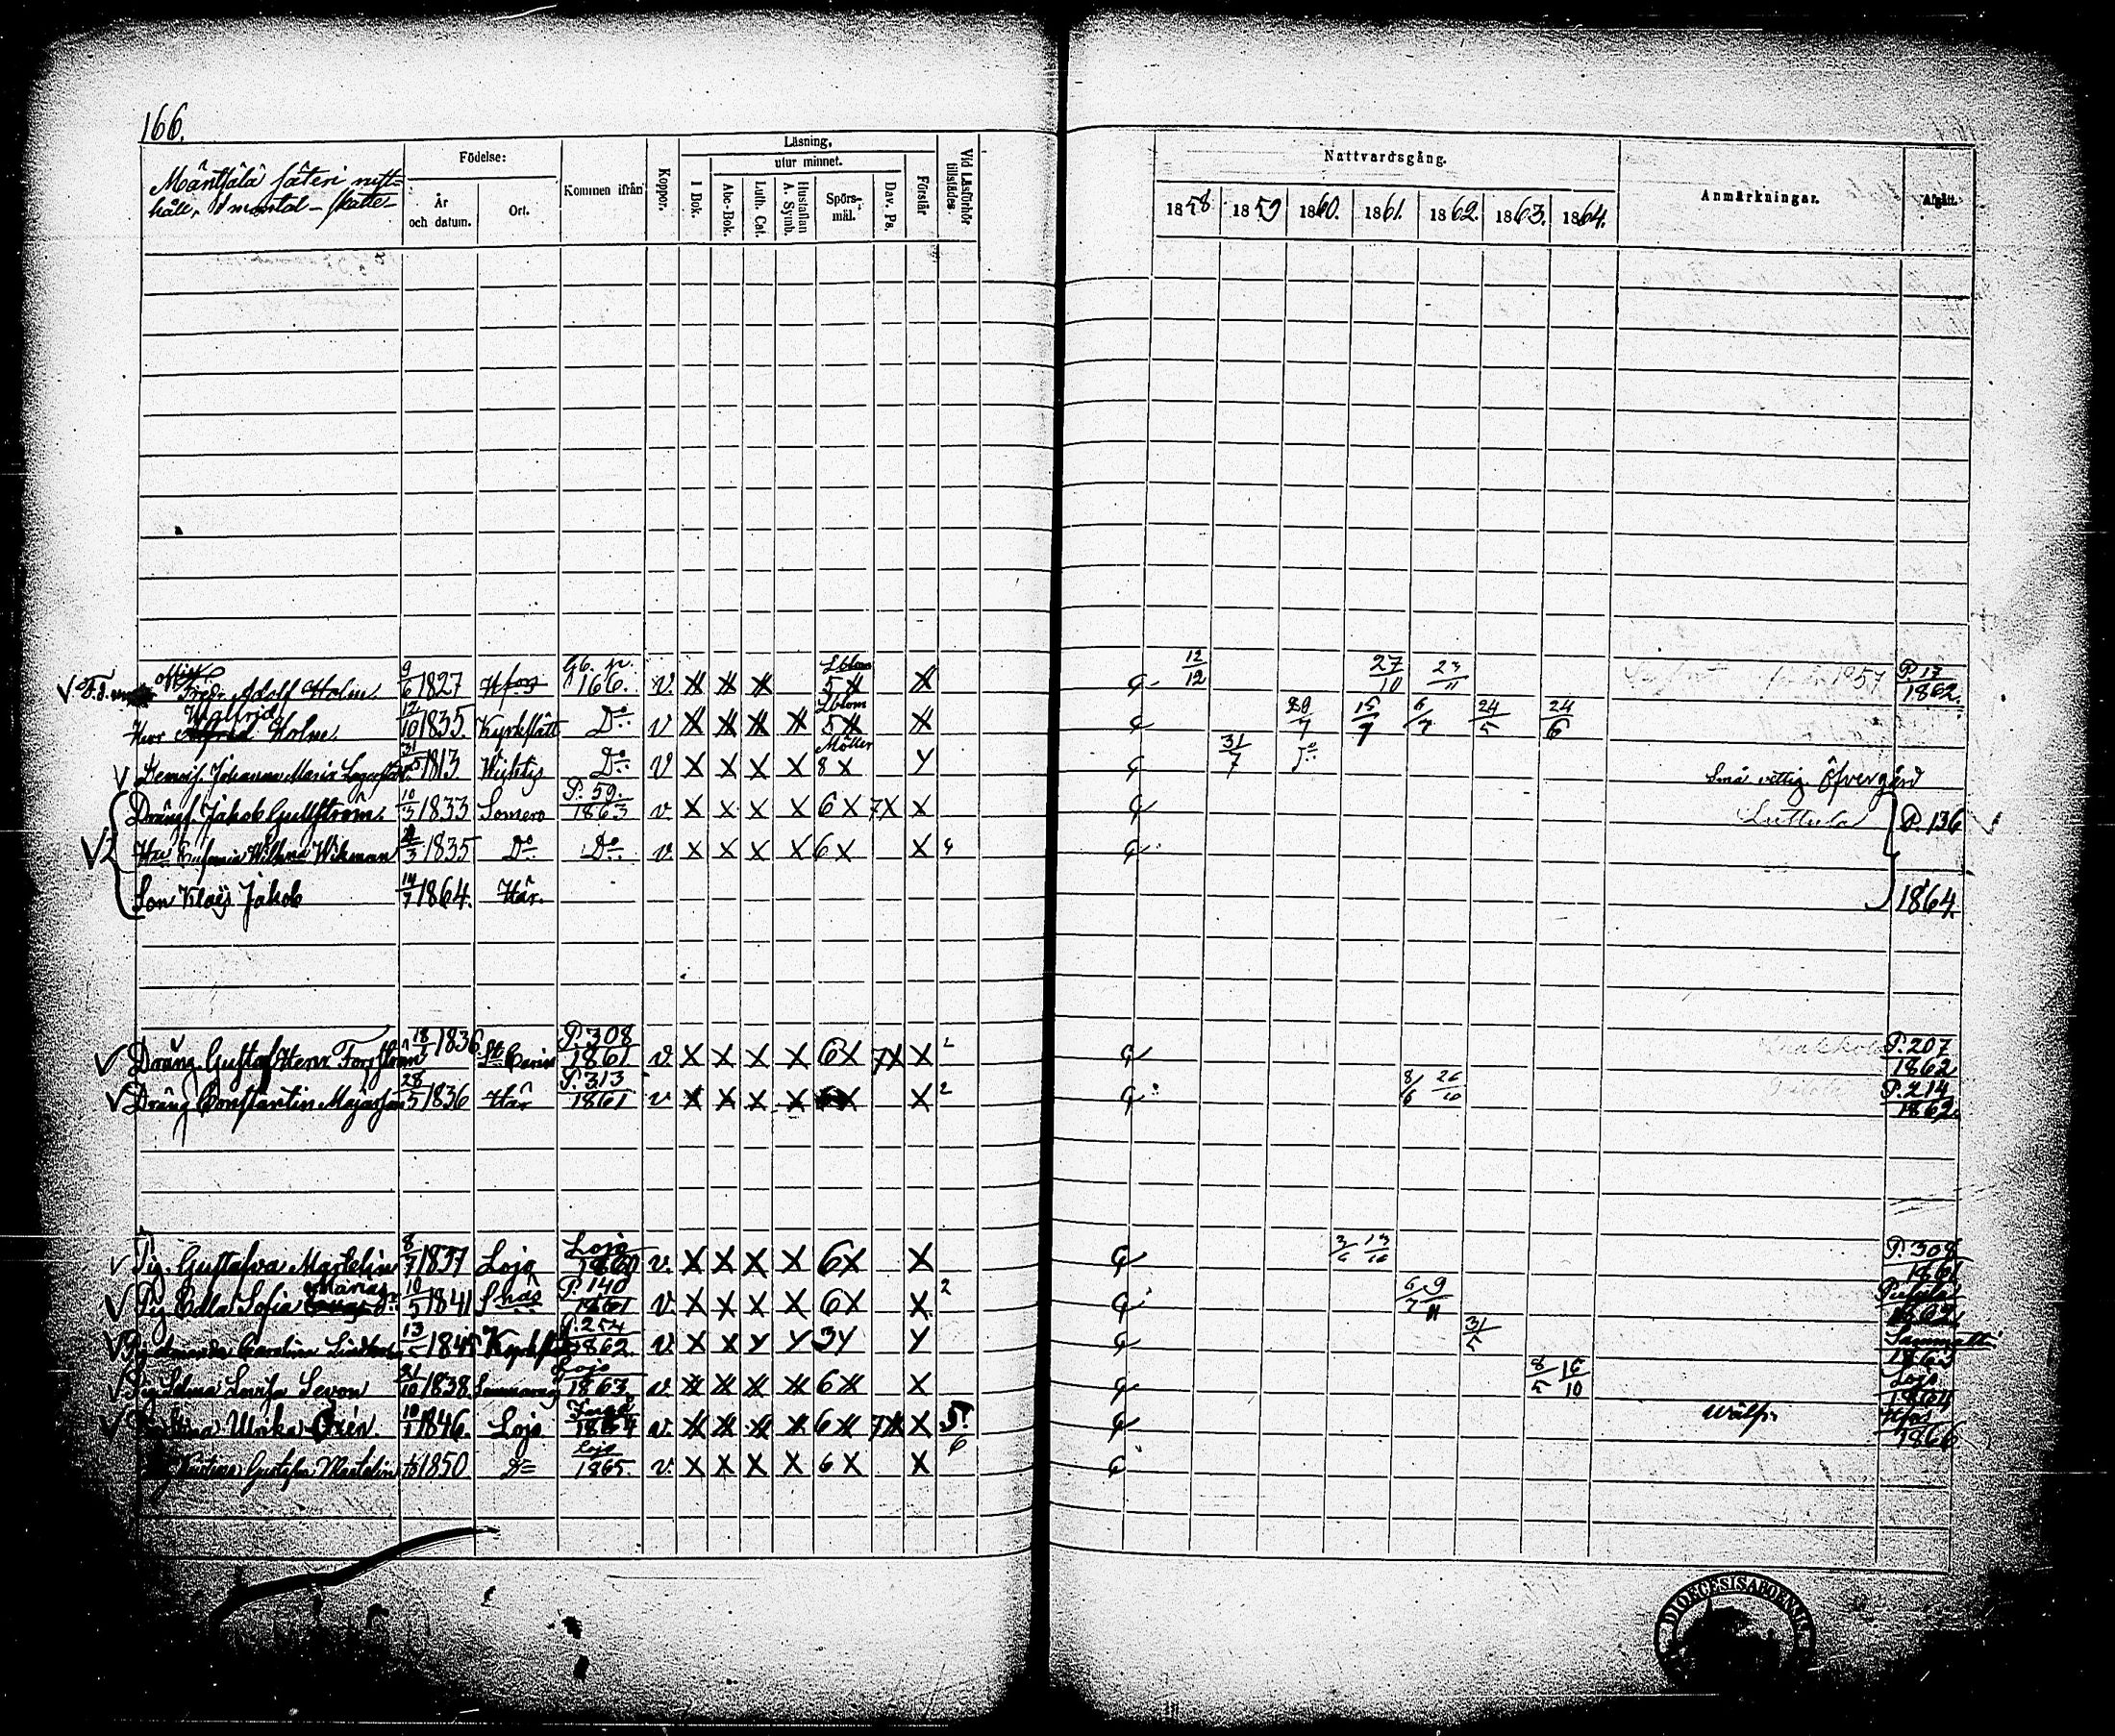 166.
Mäntsälä säteri nytt-
håll, 1 mantal - skatte
Födelse:
År
och datum.
Ort.
Kommen ifrån
Koppor.
Läsning,
utur minnet.
I Bok.
Abc-Bok.
Luth. Cat.
Hustaflan
A. Symb.
Spörs-
mål.
Dav. Ps.
Förstår
Vid Läsförhör
tillstädes.
Nattvardsgång.
1858. 1859 1860. 1861. 1862. 1863. 1864.
Anmärkningar.
Afgått.
Adolf Holm 9/6 1827 Hfors Gb. p. 166. v. X X X Lblom 5 X X 12/12 27/10 23/11 P. 17 1862.
Herr Walfrid Holm. 12/10 1835. Kyrkslätt Do v X X X X Lblom 5 X X 29/7 15/9 6/7 24/5 24/6
Demois. Johanna Maria 1813 Wichtis Do v X X X X Möller 8 X Y 31/7 Do Öfvergård
Drängs. Jakob Gullström. 10/3 1833 Somero P. 59. 1863 v. X X X X 6 X 7 X X Luttula P. 136
Hu. Eufemia Wilhna Wikman 1835 Do Do v. X X X X 6 X X 4
Son Klas Jakob 14/7 1864. Här. 1864.
Dräng Gustaf Henr. Forsström 18 1836 St. Carins P. 308 1861 v. X X X X 6 X 7 X X 2 P. 207 1862
Dräng Constantin Majasson 28/5 1836 Här P. 313 1861 v X X X X X X 2 8/6 26/10 P. 214 1862.
Pig. Gustafva Martelin 8/7 1837 Lojo Lojo 1860 v. X X X X 6 X X 3/6 13/10 P. 308 1861
Pig Edla Sofia Mariasr 10/5 1841 P. 140 1861 v. X X X X 6 X X 2 6/7 9/11 1862
Pig Amanda Carolina 13/5 1845 P. 254 1862. v. X X Y Y 3 Y Y 31/5 Sammatti 1863
Pig Selma Lovisa Levon 21/10 1838. Lojo 1863. v. X X X X 6 X X 8/5 16/10 Lojo 1864
Ulrika Oxén. 10/7 1846. Lojo 1864 v. X X X X 6 X 7 X X 5/6 Hfors 1866
Gustafva Martelin 1850 Do Lojo 1865. v. X X X X 6 X X
DIOECESIS ABOENSIS